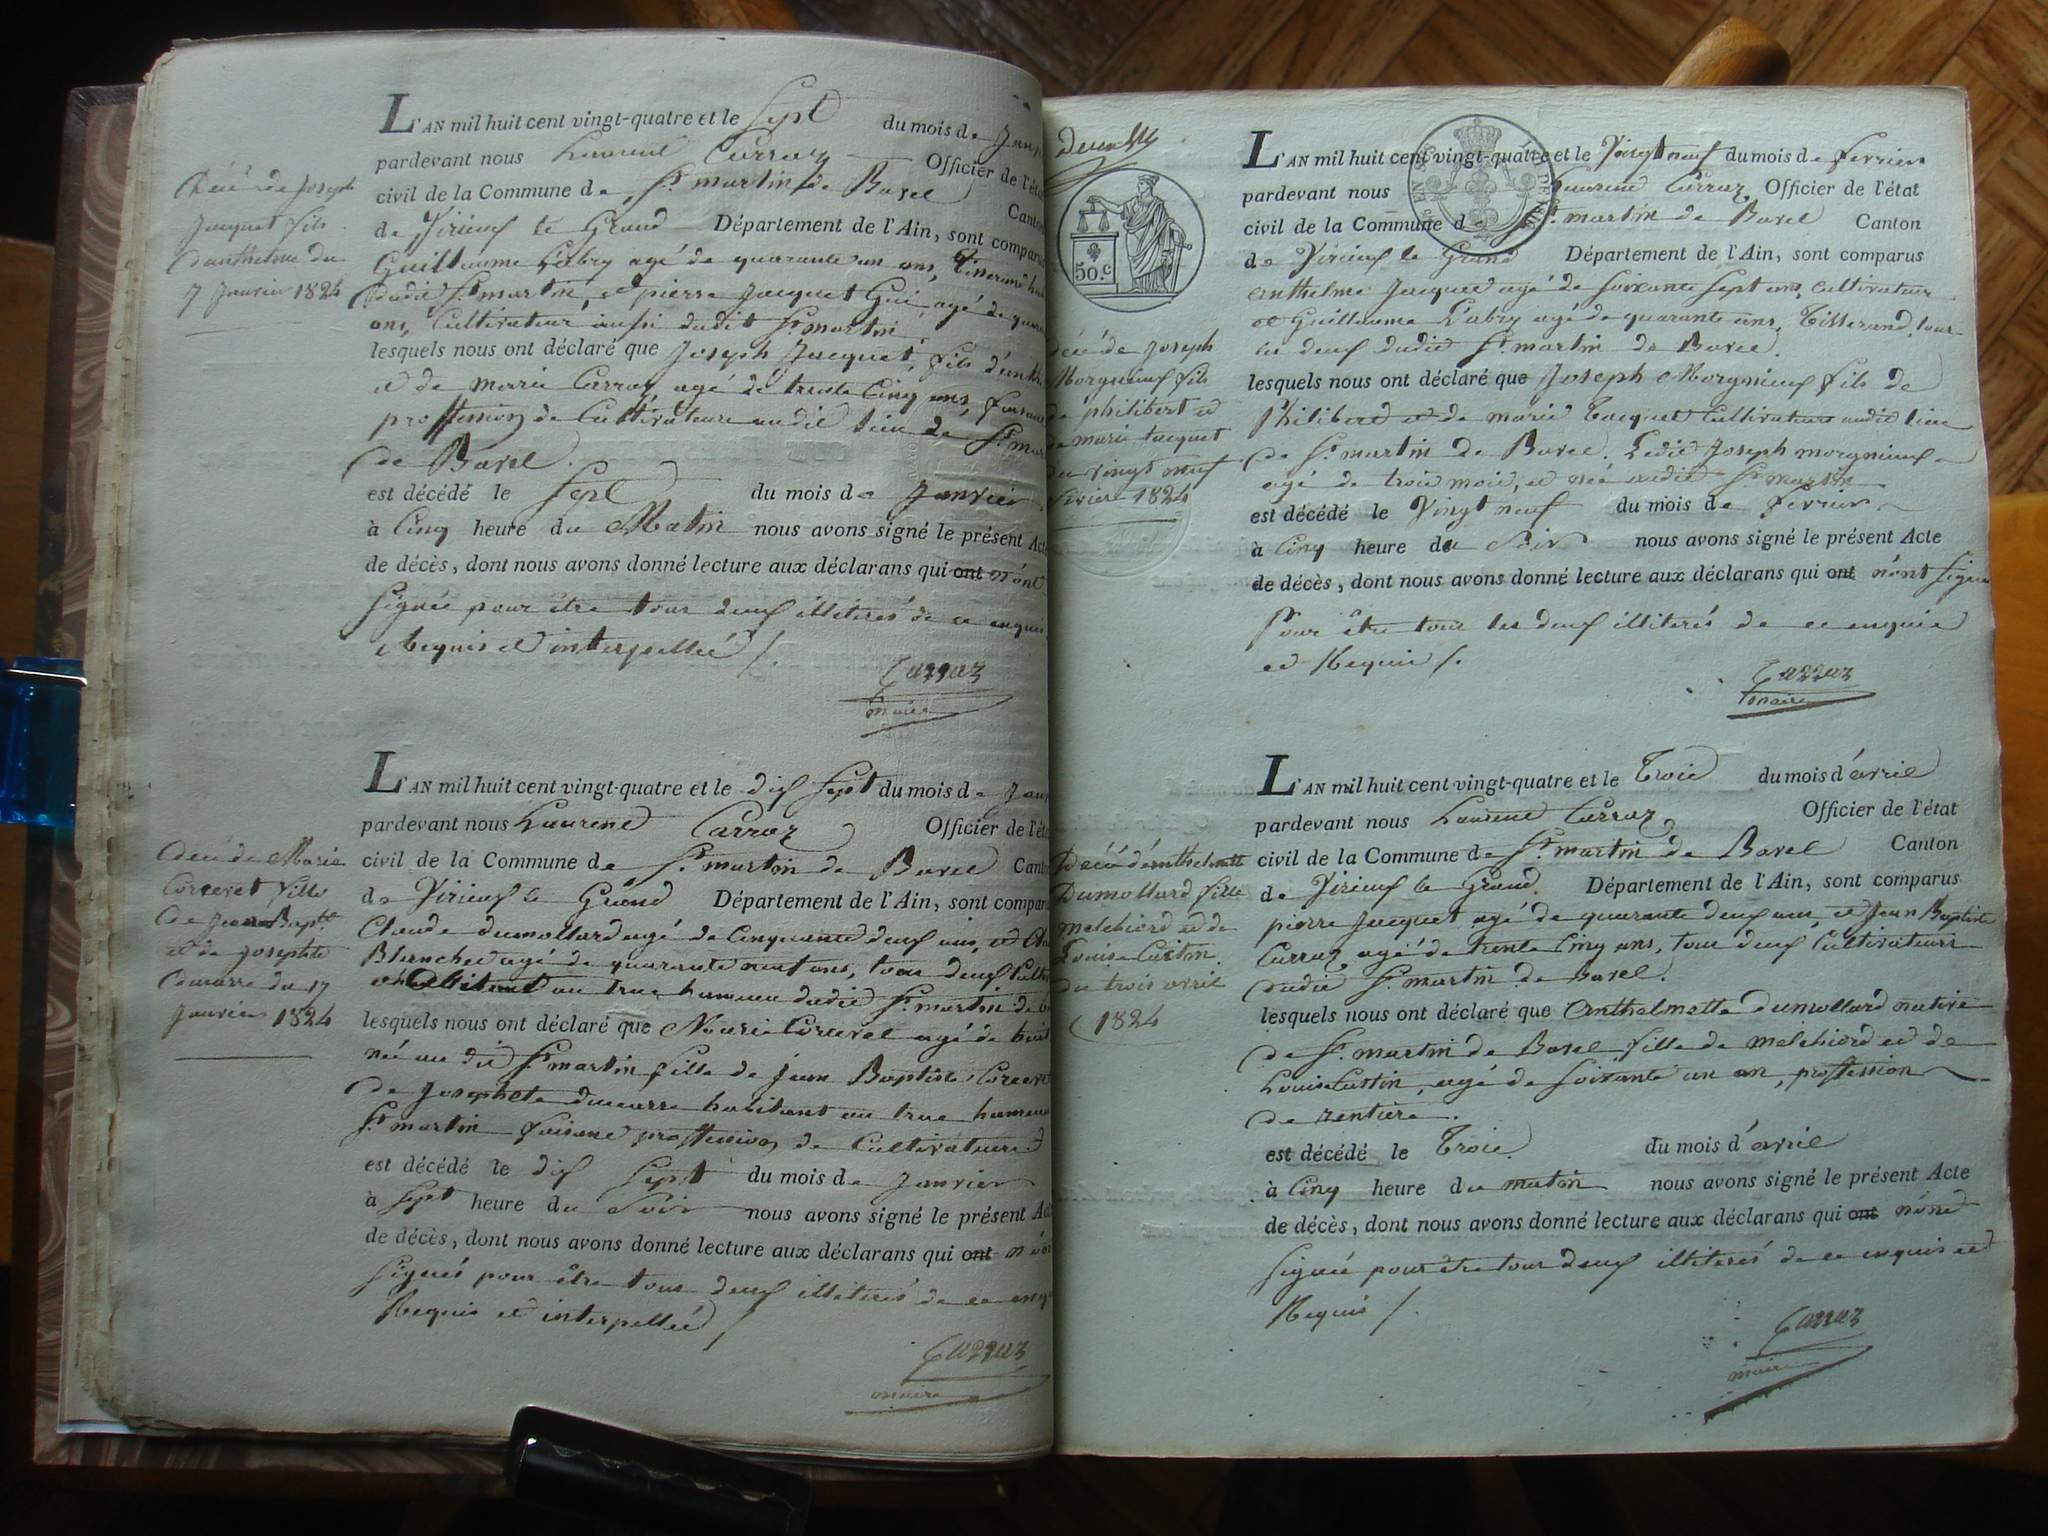 Décé de Joseph
Jacquet fils
d'anthelme du
7 Janvier 1824
L'AN mil huit cent vingt-quatre et le Sept du mois de Janv
pardevant nous Laurent Carraz Officier de l'état
civil de la Commune de St martin de Bavel Canton
de Virieux le Grand Département de l'Ain, sont comparus
Guillaume Labry agé de quarante un ans, Tisserand
dudit St martin, et pierre Jacquet Gui, agé de quar
ans, Cultivateur aussi dudit St martin
lesquels nous ont déclaré que Joseph Jacquet, fils d'anth
et de marie Carraz agé de trente Cinq ans, faisant
proffession de Cultivateur audit lieu de St mar
de Bavel.
est décédé le Sept du mois de Janvier
à Cinq heure du Matin nous avons signé le présent Acte
de décès, dont nous avons donné lecture aux déclarans qui ont n'ont
signés pour être tous deux illiterés de ce enquis
Requis et interpellés /.
Carraz
maire
décé de Marie
Corceret fille
de Jean Bapte
et de Josephte
Ducarre du 17
Janvier 1824
L'AN mil huit cent vingt-quatre et le dix Sept du mois de Janv
pardevant nous Laurent Carraz Officier de l'état
civil de la Commune de St martin de Bavel Canton
de Virieux le Grand Département de l'Ain, sont comparus
Claude dumollard agé de Cinquante deux ans, et
Blanchet agé de quarante ans, tous deux Cultiv
habitant au hameau dudit St martin de
lesquels nous ont déclaré que Marie Corceret agé de
née au dit St martin fille de jean Baptiste Corceret
de Josephte ducarre habitant au hameau
St martin faisant proffession de Cultivateurs
est décédé le dix Sept du mois de Janvier
à Sept heure du Soir nous avons signé le présent Acte
de décès, dont nous avons donné lecture aux déclarans qui ont n'ont
signés pour être tous deux illiterés de ce enq
Requis et interpellés /
Carraz
maire
50.c
décé de Joseph
Morgnieux fils
de philibert et
de marie Jacquet
du vingt neuf
février 1824
L'AN mil huit cent vingt-quatre et le Vingt neuf du mois de fevrier
pardevant nous Laurent Carraz Officier de l'état
civil de la Commune de St martin de Bavel Canton
de Virieux le Grand Département de l'Ain, sont comparus
anthelme Jacquet agé de soixante sept ans, Cultivateur
et Guillaume Labry agé de quarante ans, Tisserand, tous
les deux dudit St martin de Bavel.
lesquels nous ont déclaré que Joseph Morgnieux fils de
Philibert et de marie Jacquet Cultivateurs audit lieu
de St martin de Bavel. Ledit Joseph morgnieux
agé de trois mois, et née audit St martin
est décédé le Vingt neuf du mois de fevrier
à Cinq heure du Soir nous avons signé le présent Acte
de décès, dont nous avons donné lecture aux déclarans qui ont n'ont signé
Pour être tous les deux illiterés de ce enquis
et Requis /.
Carraz
maire
Décé d'anthelmette
Dumollard fille
melchiord et de
Louise Custin
du trois avril
1824
L'AN mil huit cent vingt-quatre et le Trois du mois d'avril
pardevant nous Laurent Carraz Officier de l'état
civil de la Commune de St martin de Bavel Canton
de Virieux le Grand Département de l'Ain, sont comparus
pierre Jacquet agé de quarante deux ans, et Jean Baptiste
Carraz agé de trente Cinq ans, tous deux Cultivateurs
dudit St martin de Bavel.
lesquels nous ont déclaré que Anthelmette dumollard native
de St martin de Bavel fille de melchiord et de
Louise Custin, agé de soixante un an, proffession
de rentiere.
est décédé le Trois du mois d'avril
à Cinq heure du matin nous avons signé le présent Acte
de décès, dont nous avons donné lecture aux déclarans qui ont n'ont
signés pour être tous deux illiterés de ce enquis et
Requis /.
Carraz
maire